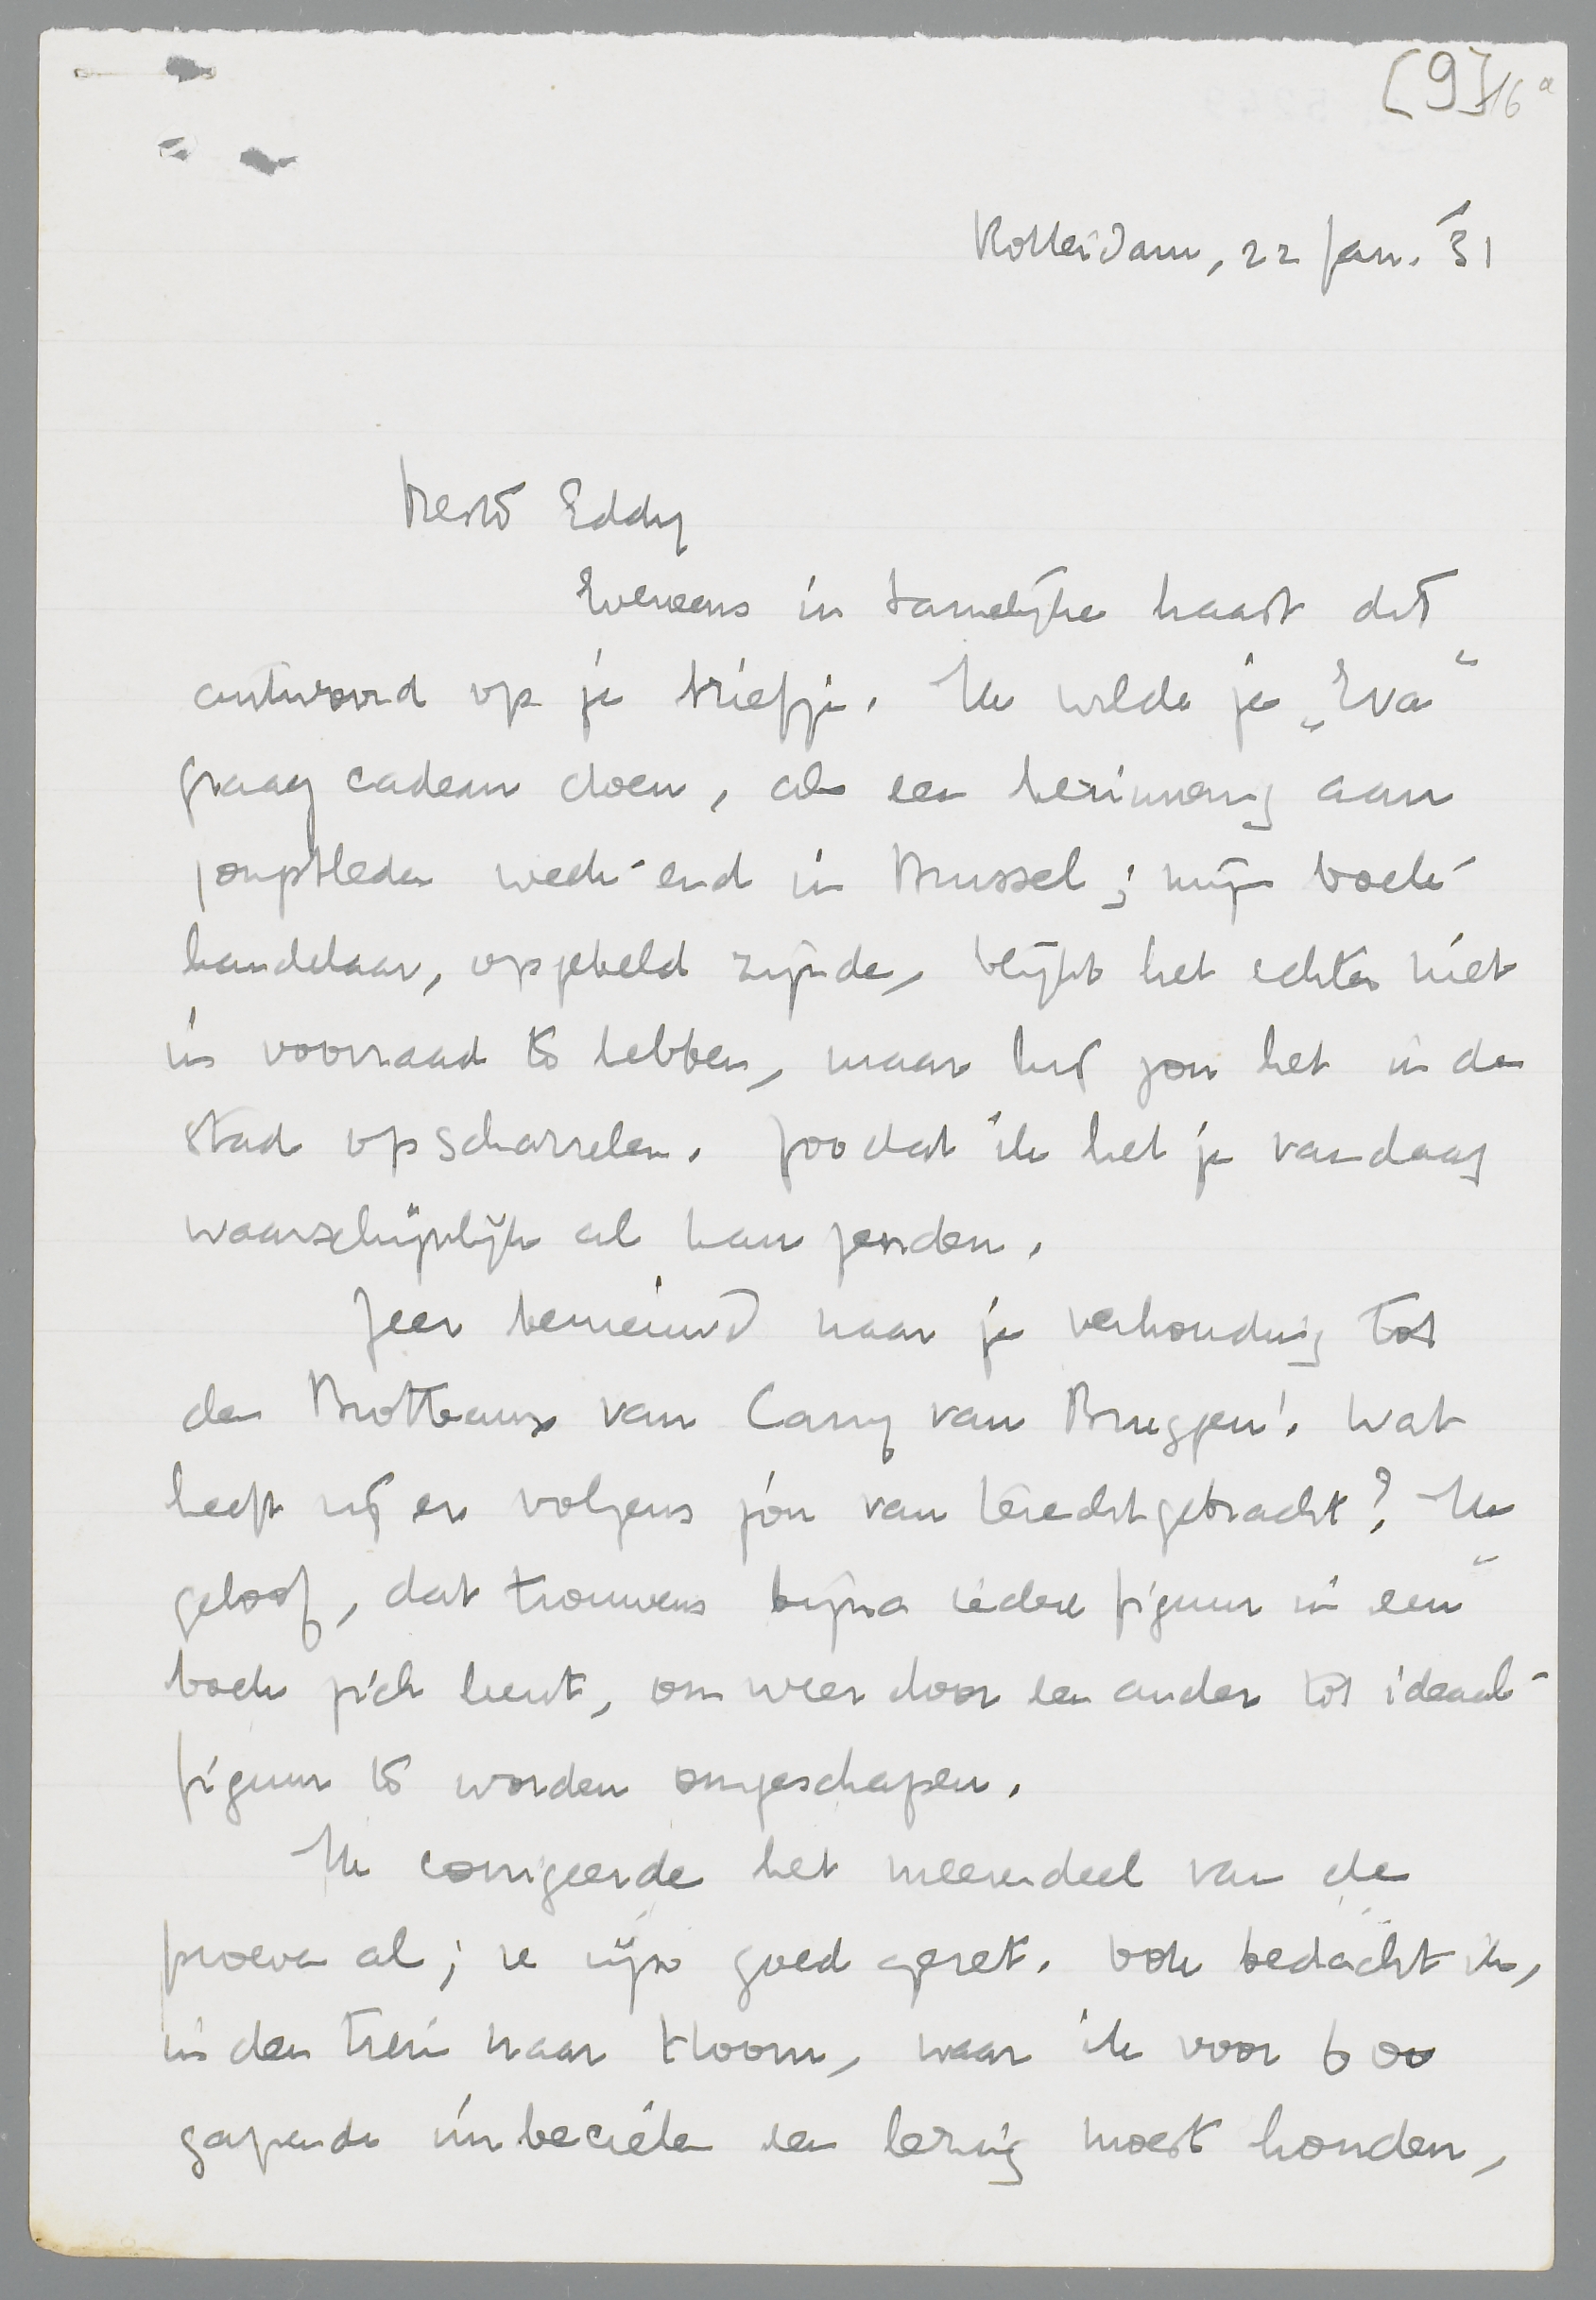 [9] 16a
Rotterdam, 22 Jan. '31
Beste Eddy
Eveneens in tamelijke haast dit
antwoord op je briefje. Ik wilde je „Eva”
graag cadeau doen, als een herinnering aan
jongstleden week-end in Brussel; mijn boek-
handelaar, opgebeld zijnde, blijkt het echter niet
in voorraad te hebben, maar hij zou het in de
stad opscharrelen. Zoodat ik het je vandaag
waarschijnlijk al kan zenden.
Zeer benieuwd naar je verhouding tot
den Brotteaux van Carry van Bruggen! Wat
heeft zij er volgens jou van terechtgebracht? Ik
geloof, dat trouwens bijna iedere figuur in een
boek zich leent, om weer door een ander tot ideaal-
figuur te worden omgeschapen.
Ik corrigeerde het meerendeel van de
proeven al; ze zijn goed gezet. Ook bedacht ik,
in den trein naar Hoorn, waar ik voor 600
gapende imbecielen een lezing moest houden,